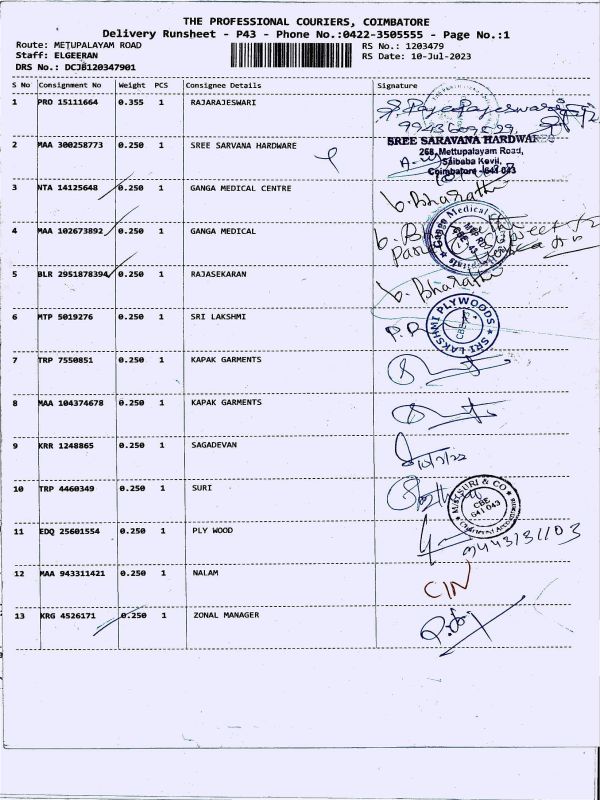 THE PROFESSIONAL COURIERS, COIMBATORE
Delivery Runsheet - P43 - Phone No.:0422-3505555 - Page No.:1
Route: METUPALAYAM ROAD RS No.: 1203479
Staff: ELGEERAN RS Date: 10-Jul-2023
DRS No.: DCJB120347901
S No Consignment No Weight PCS Consignee Details Signature
1 PRO 15111664 0.355 1 RAJARAJESWARI
2 MAA 300258773 0.250 1 SREE SARVANA HARDWARE
SREE SARAVANA HARDWARES
268, Mettupalayam Road,
Saibaba Kovil,
Coimbatore - 641 043
3 NTA 14125648 0.250 1 GANGA MEDICAL CENTRE b. Bharathi
4 MAA 102673892 0.250 1 GANGA MEDICAL
Ganga Medical
5 BLR 2951878394 0.250 1 RAJASEKARAN b. Bharathi
6 MTP 5019276 0.250 1 SRI LAKSHMI
SRI LAKSHMI PLYWOODS
7 TRP 7550851 0.250 1 KAPAK GARMENTS
8 MAA 104374678 0.250 1 KAPAK GARMENTS
9 KRR 1248865 0.250 1 SAGADEVAN
10 TRP 4460349 0.250 1 SURI
SURI & CO
CBE
641 043
Chartered Accountants
11 EDQ 25601554 0.250 1 PLY WOOD
12 MAA 943311421 0.250 1 NALAM CIN
13 KRG 4526171 0.250 1 ZONAL MANAGER